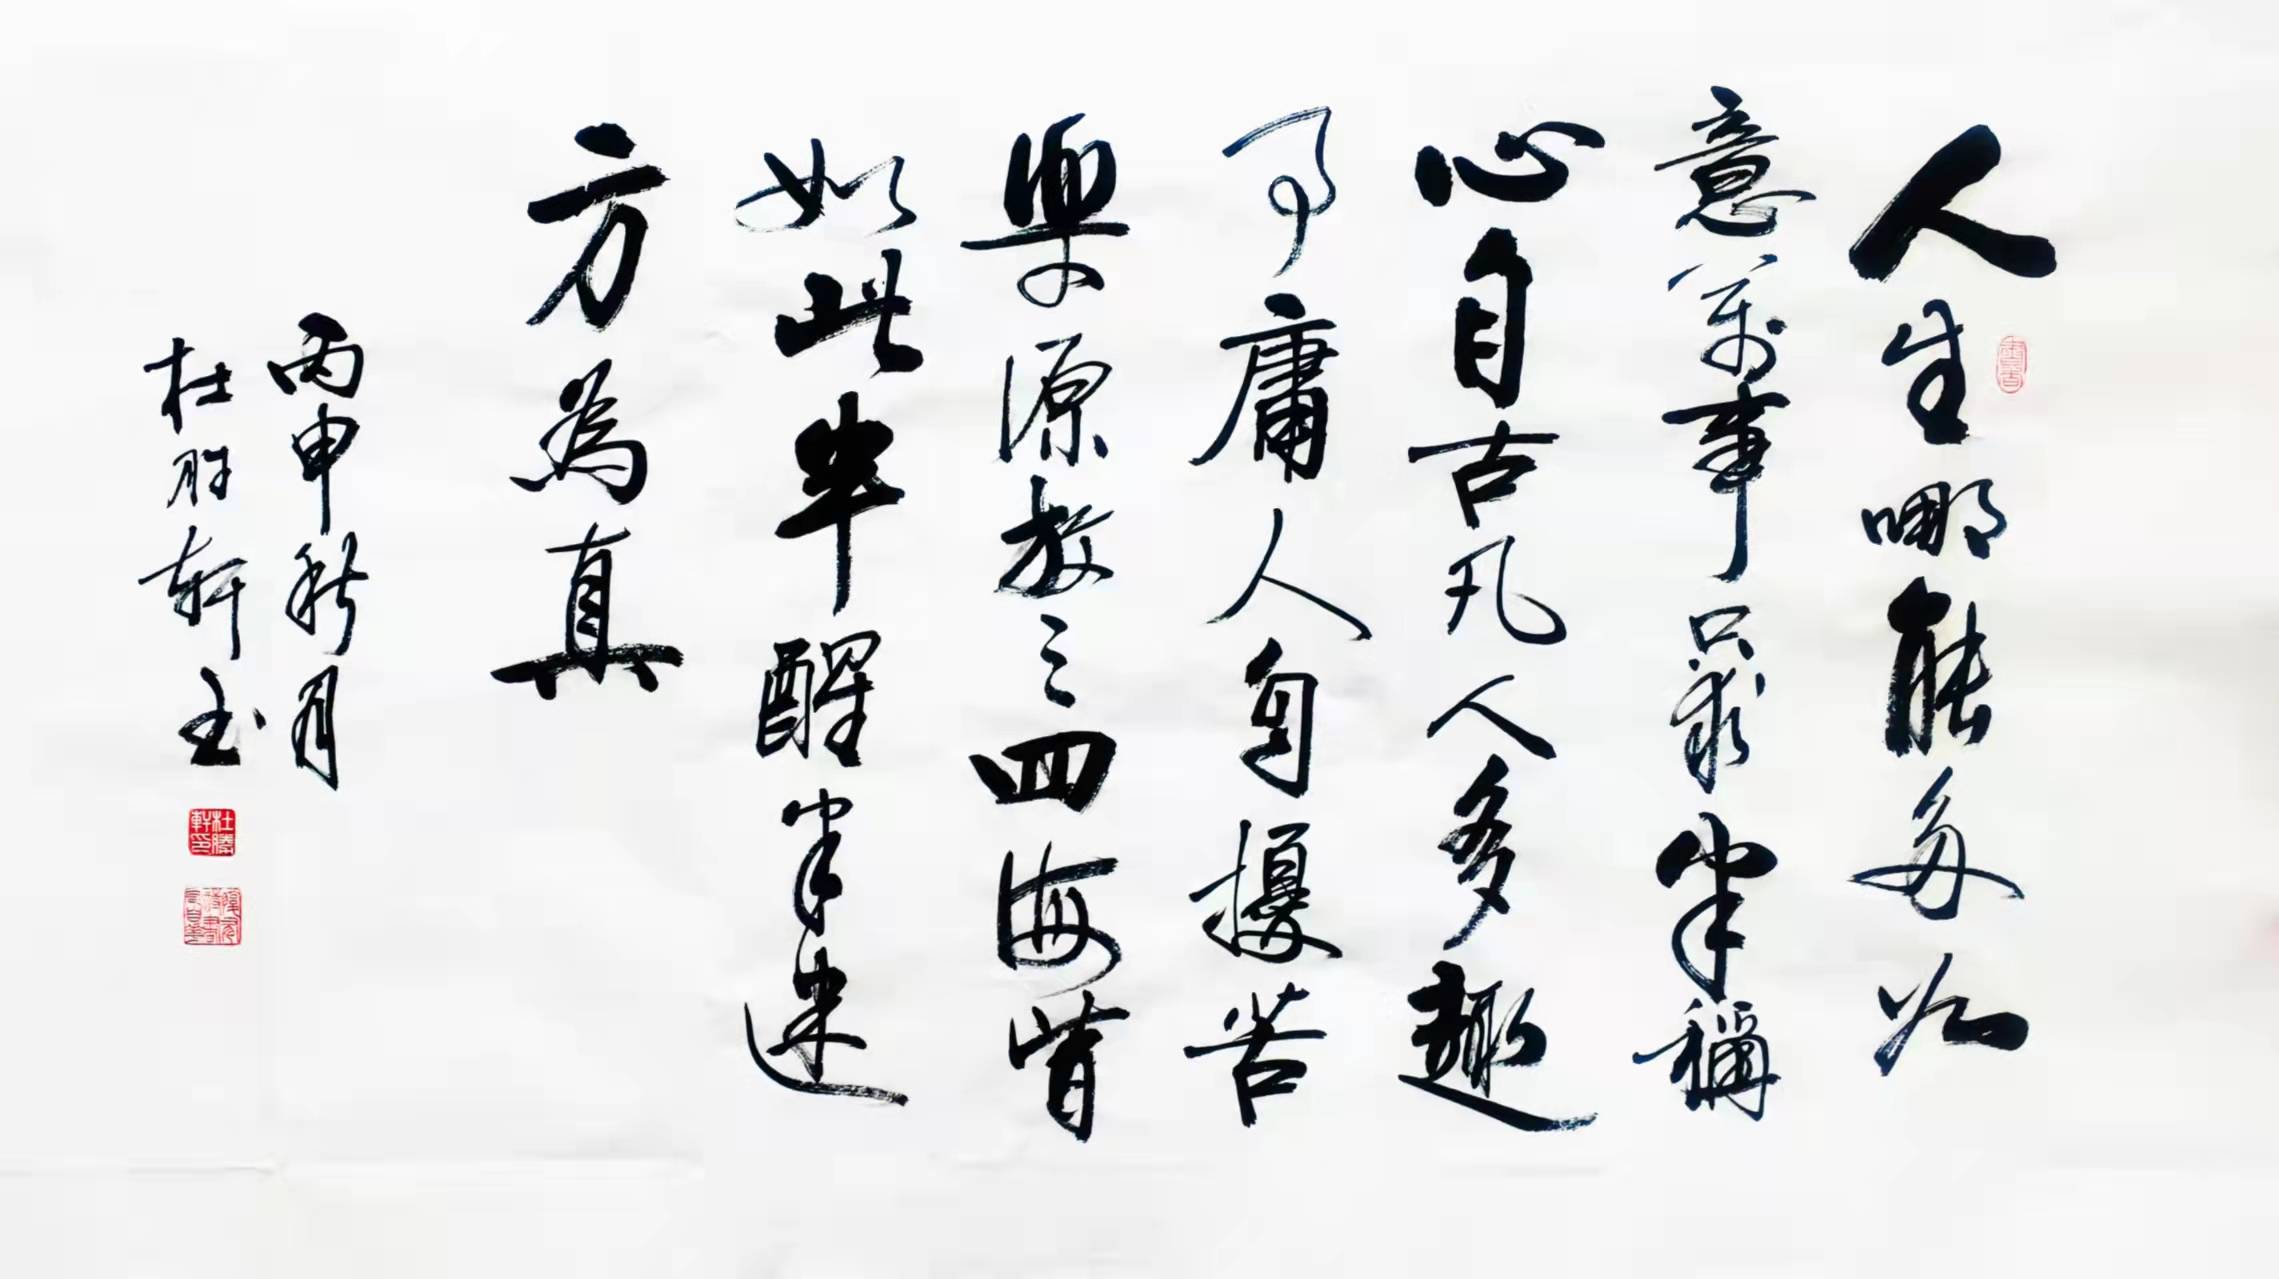 人生哪能多如
意萬事只求半稱
心自古凡人多趣
事庸人自擾苦
樂源放之四海皆
如此半醒半迷
方為真
丙申秋月
杜胜轩书
杜勝軒印